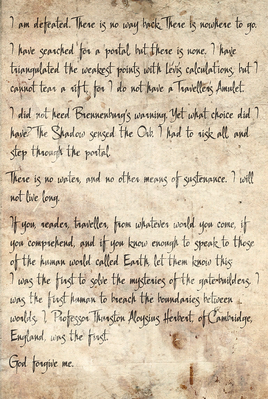 I am defeated. There is no way back. There is nowhere to go.
I have searched for a portal, but there is none. I have
triangulated the weakest points with Lévis calculations, but I
cannot tear a rift, for I do not have a Travellers Amulet.
I did not heed Brennenburg's warning. Yet what choice did I
have? The Shadow sensed the Orb. I had to risk all, and
step through the portal.
There is no water, and no other means of sustenance. I will
not live long.
If you, reader, traveller, from whatever world you come, if
you comprehend, and if you know enough to speak to those
of the human world called Earth, let them know this:
I was the first to solve the mysteries of the gatebuilders. I
was the first human to breach the boundaries between
worlds. I, Professor Thurston Aloysius Herbert, of Cambridge,
England, was the first.
God forgive me.